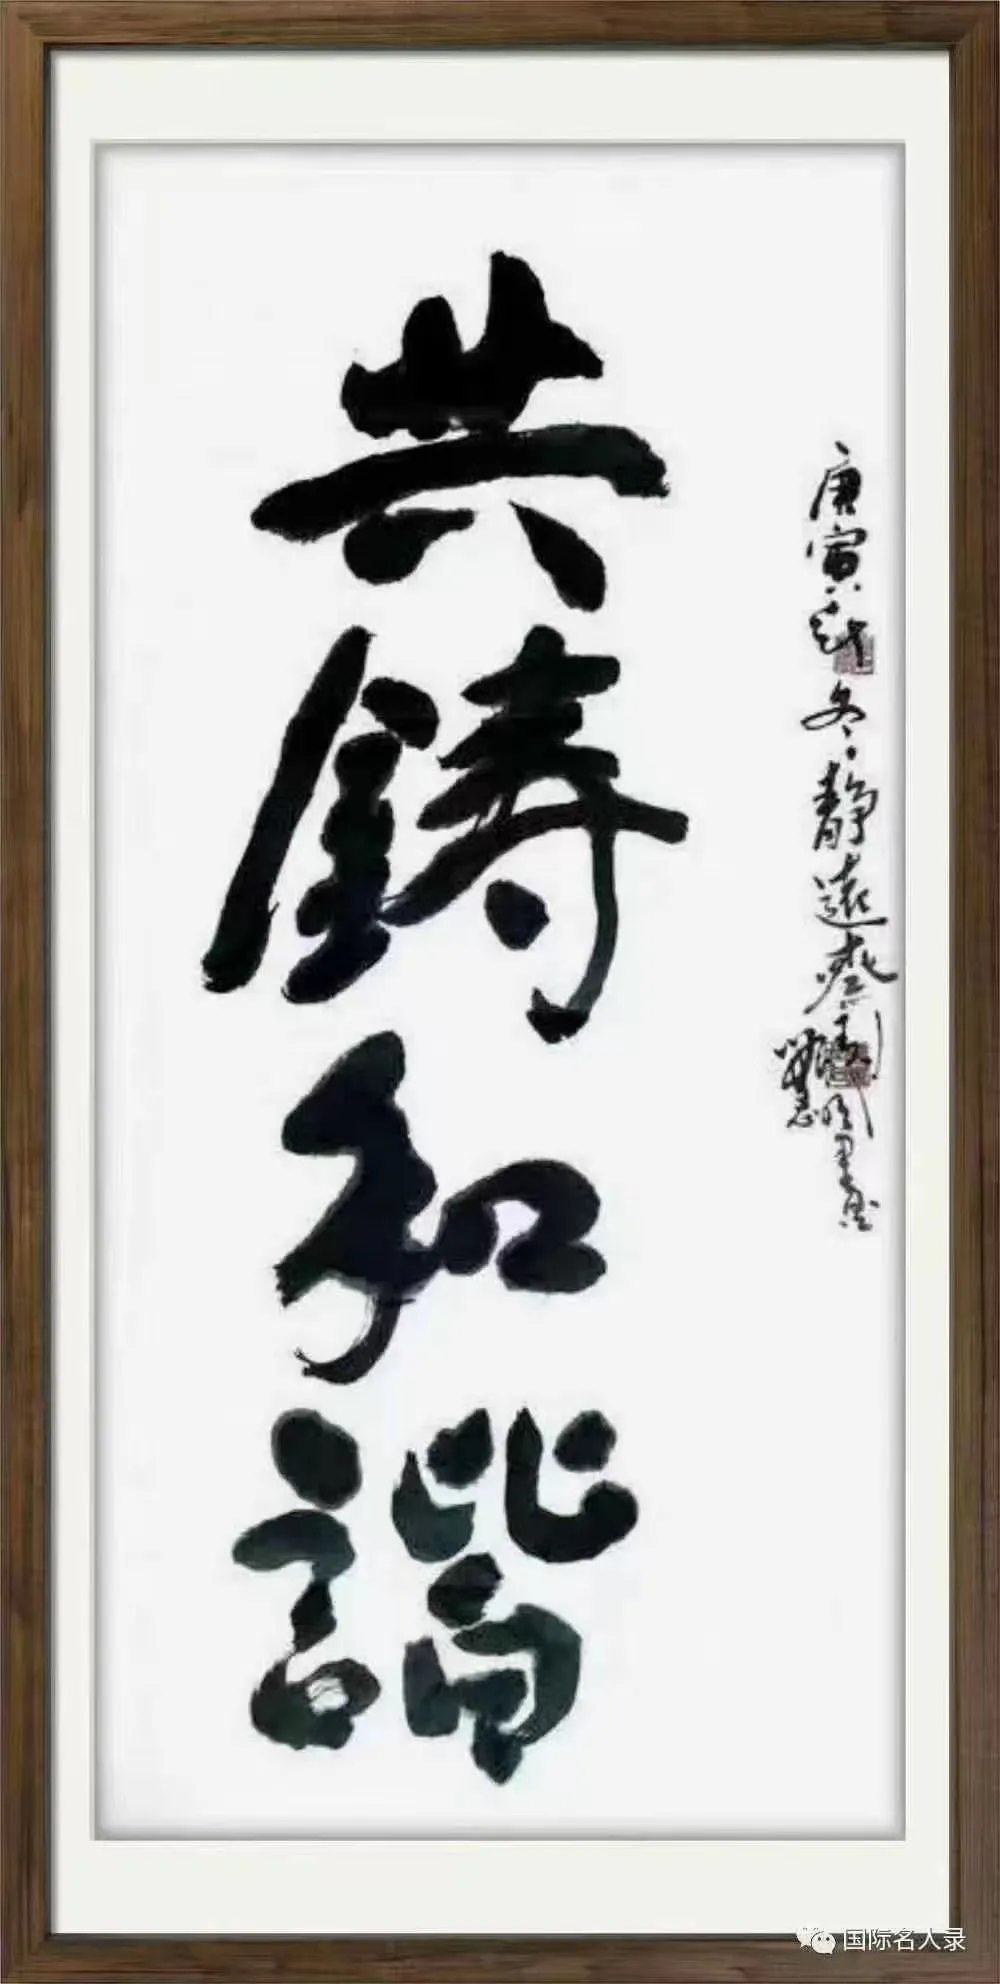 共鑄和諧
庚寅 冬静远斋
国际名人录